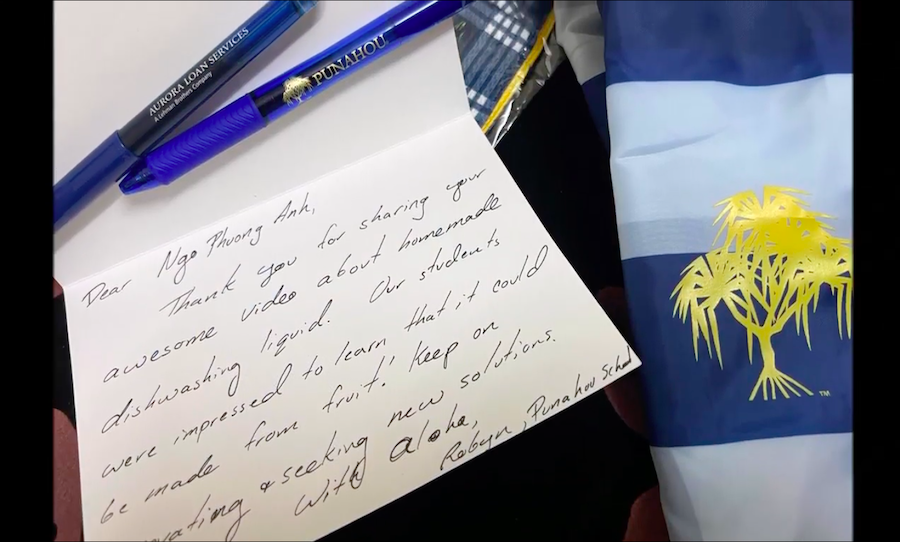 AURORA LOAN SERVICES
A Lehman Brothers Company
PUNAHOU
Dear Ngo Phuong Anh,
Thank you for sharing your
awesome video about homemade
dishwashing liquid. Our students
were impressed to learn that it could
be made from fruit! Keep on
vating & seeking new solutions.
With aloha,
Robyn, Punahou School
TM